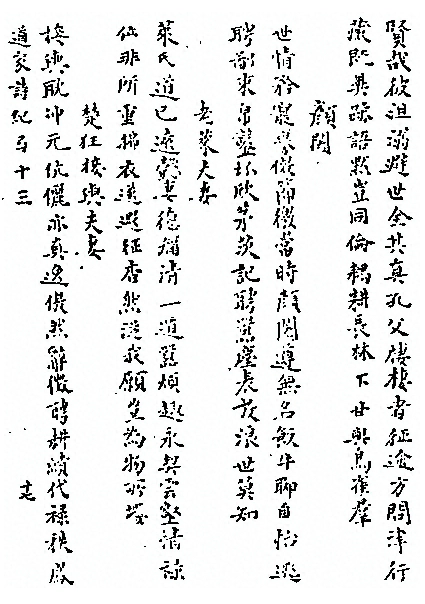 賢哉彼沮溺避世全其真孔父棲棲者征途方問津行
藏既異跡語默豈同倫耦耕長林下甘與鳥雀群
顏闔
世情矜寵譽效節徼當時顏闔遵無名飯牛聊自怡逃
聘鄙束帛鑿坏欣茅茨記聘驚塵表放浪世莫知
老萊夫妻
萊氏道已遠懿妻德彌清一遁囂煩趣永契雲壑情祿
位非所重拂衣遂遐征杳然從我願豈為物所嬰
楚狂接輿夫妻
接輿耽沖元伉儷亦真逸傲然辭徵聘耕績代祿秩鳳
道家詩紀弓十三
十七